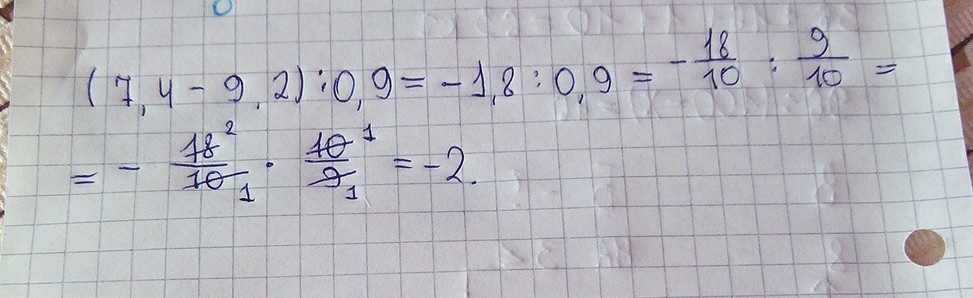 (7,4 - 9,2):0,9 = -1,8:0,9 = -18/10 : 9/10 =
= - 18²/10₁ · 10¹/9₁ = -2.